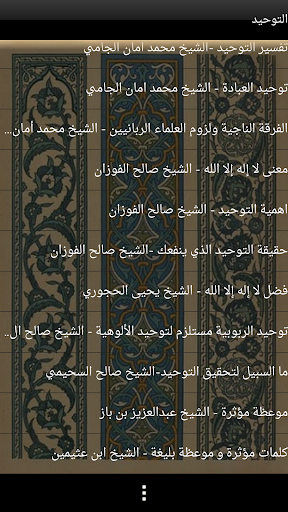 التوحيد
تفسير التوحيد -الشيخ محمد امان الجامي
توحيد العبادة - الشيخ محمد امان الجامي
الفرقة الناجية ولزوم العلماء الربانيين - الشيخ محمد أمان...
معنى لا إله إلا الله - الشيخ صالح الفوزان
اهمية التوحيد - الشيخ صالح الفوزان
حقيقة التوحيد الذي ينفعك -الشيخ صالح الفوزان
فضل لا إله إلا الله - الشيخ يحيى الحجوري
توحيد الربوبية مستلزم لتوحيد الألوهية - الشيخ صالح ال...
ما السبيل لتحقيق التوحيد-الشيخ صالح السحيمي
موعظة مؤثرة - الشيخ عبدالعزيز بن باز
كلمات مؤثرة و موعظة بليغة - الشيخ ابن عثيمين